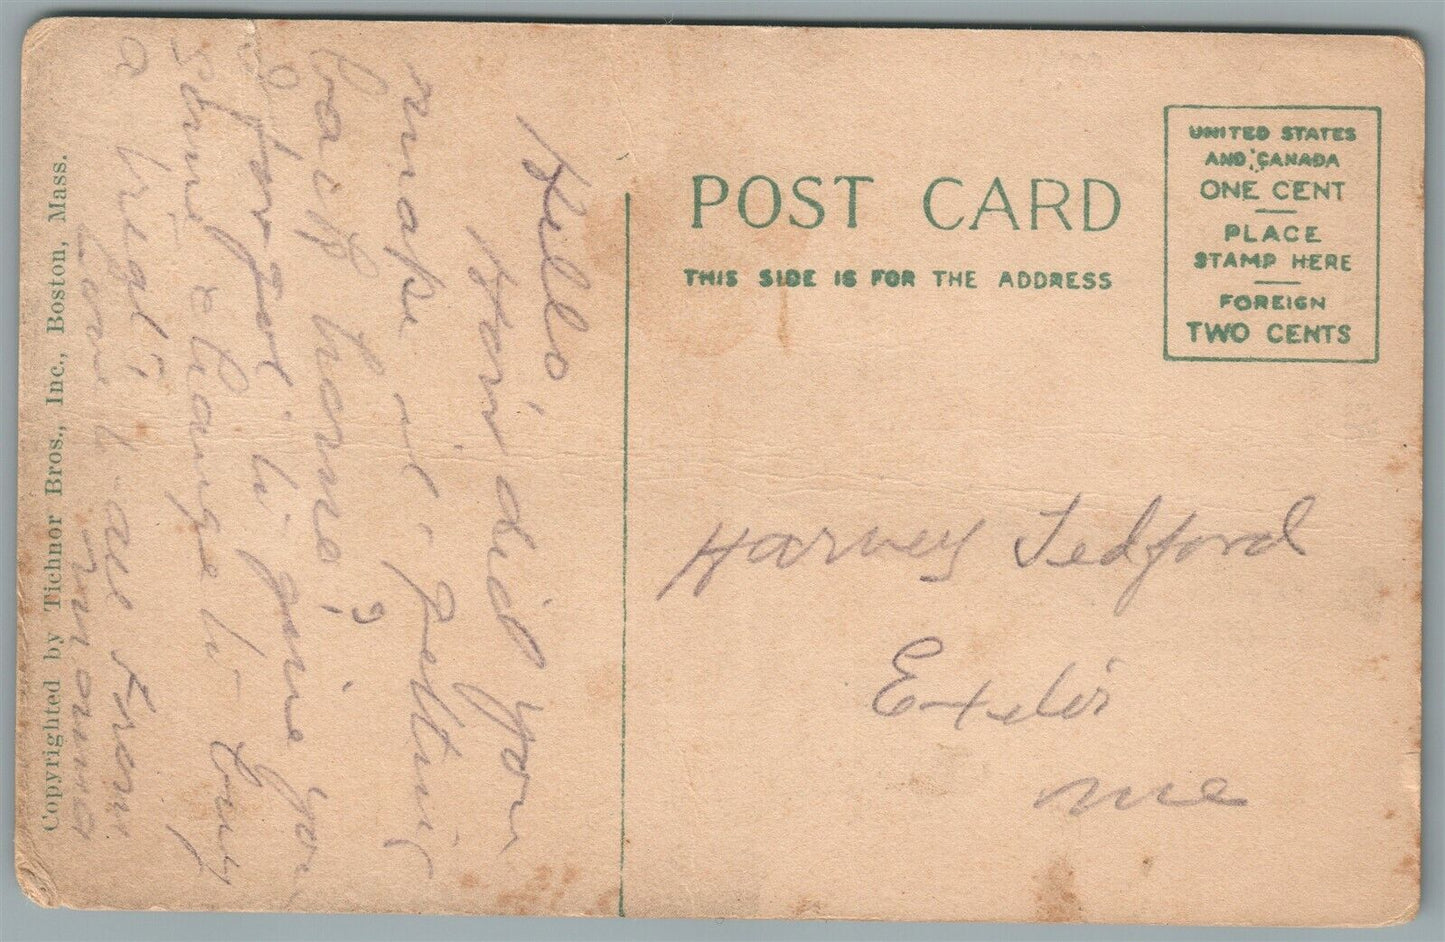 Hello,
How did you
make it getting
back home?
I forgot to give you
some change to buy
a treat
Love to all from
Copyrighted by Tichnor Bros., Inc., Boston, Mass.
POST CARD
THIS SIDE IS FOR THE ADDRESS
UNITED STATES
AND CANADA
ONE CENT
PLACE
STAMP HERE
FOREIGN
TWO CENTS
Harvey Tedford
Exeter
Me